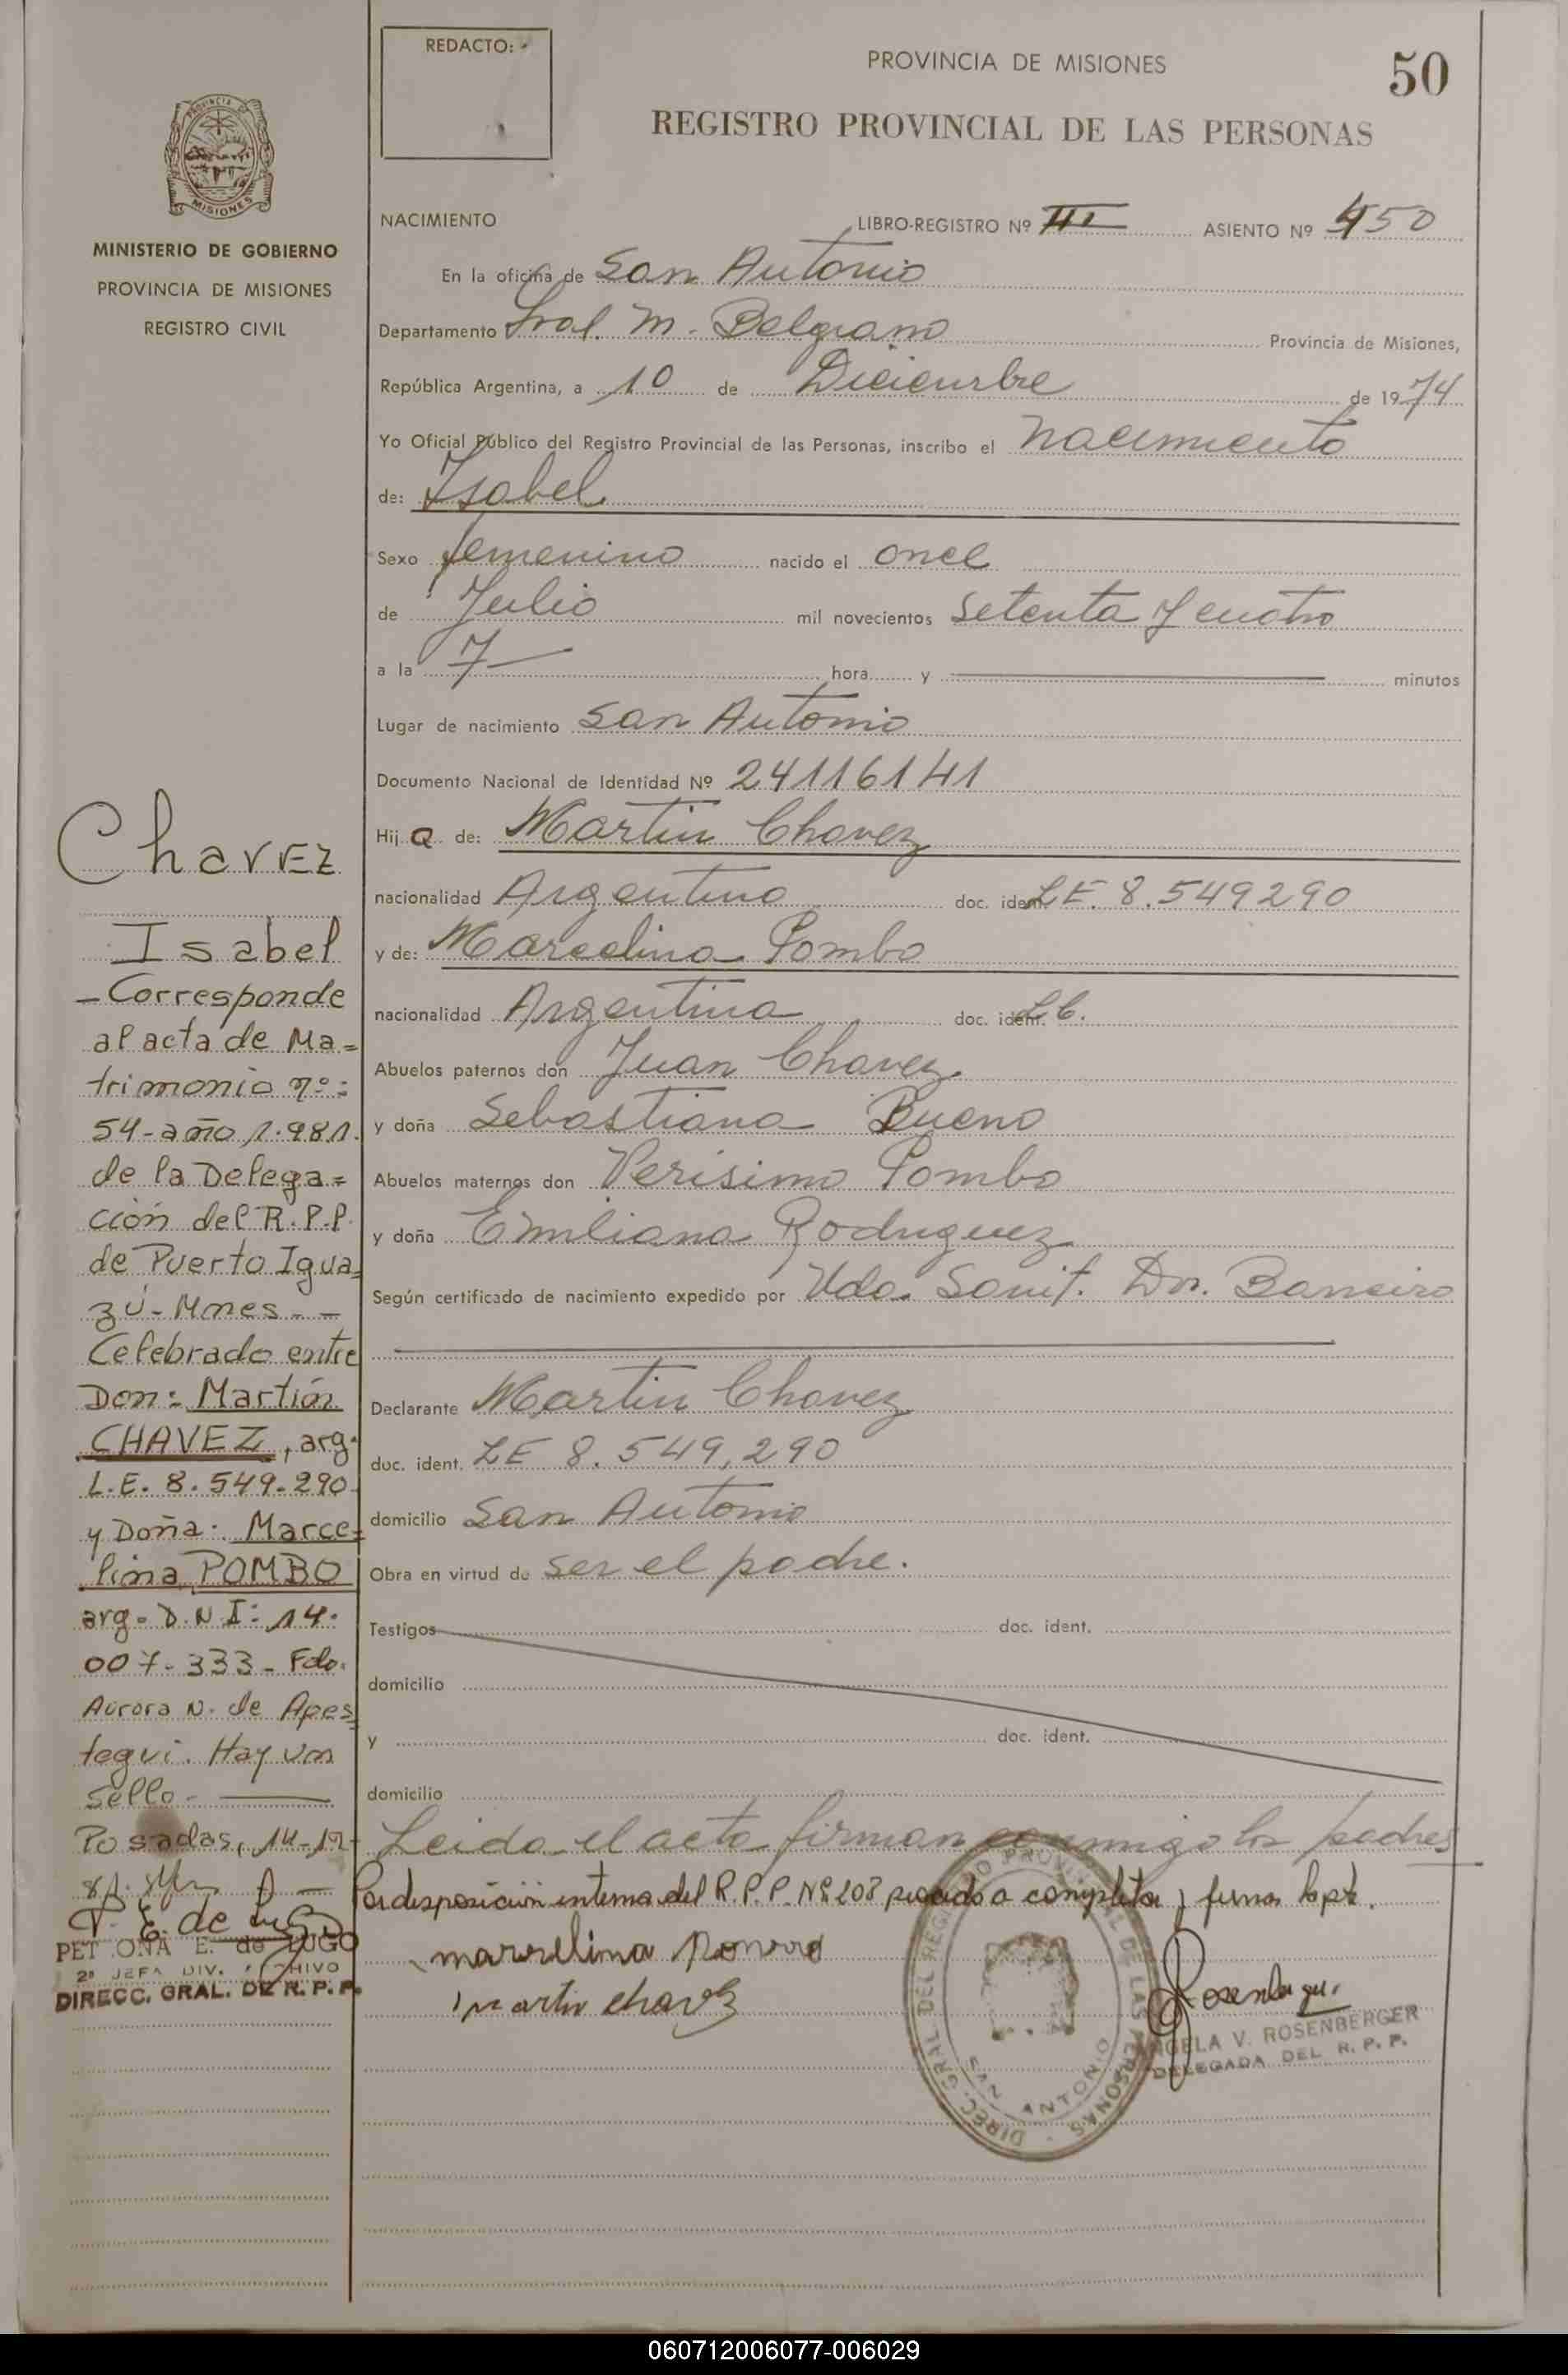 REDACTO:
PROVINCIA DE MISIONES
50
REGISTRO PROVINCIAL DE LAS PERSONAS
MISIONES
MINISTERIO DE GOBIERNO
PROVINCIA DE MISIONES
REGISTRO CIVIL
NACIMIENTO LIBRO-REGISTRO Nº III ASIENTO Nº 450
En la oficina de San Antonio
Departamento Gral. M. Belgrano Provincia de Misiones,
República Argentina, a 10 de Diciembre de 1974
Yo Oficial Público del Registro Provincial de las Personas, inscribo el nacimiento
de: Isabel
Sexo femenino nacido el once
de Julio mil novecientos setenta y cuatro
a la 7 hora y minutos
Lugar de nacimiento San Antonio
Documento Nacional de Identidad Nº 24116141
Hija de: Martin Chavez
nacionalidad Argentino doc. ident. L.E. 8.549290
y de: Marcelina Pombo
nacionalidad Argentina doc. ident. L.C.
Abuelos paternos don Juan Chavez
y doña Sebastiana Bueno
Abuelos maternos don Verisimo Pombo
y doña Emiliana Rodriguez
Según certificado de nacimiento expedido por Uda. Sanit. Dr. Barreiro
Declarante Martin Chavez
doc. ident. LE 8.549,290
domicilio San Antonio
Obra en virtud de ser el padre.
Testigos doc. ident.
domicilio
y doc. ident.
domicilio
Leida el acta firman conmigo los padres
Por disposición interna del R.P.P. Nº 208 procedo a completar y firmar la pte.
martin chavez
Rosenberger
ANGELA V. ROSENBERGER
DELEGADA DEL R. P. P.
DIREC. GRAL. DEL REGISTRO PROVINCIAL DE LAS PERSONAS
SAN ANTONIO
Chavez
Isabel
- Corresponde
al acta de Ma=
trimonio nº:
54-año 1.981.
de la Delega=
ción del R.P.P.
de Puerto Igua=
zú-Mnes.-
Celebrado entre
Don: Martín
CHAVEZ, arg.
L.E. 8.549.290
y Doña: Marce=
lina POMBO
arg. D.N.I: 14.
007.333- Fdo.
Aurora N. de Apes=
tegui. Hay un
sello.-
Posadas, 14-12-
P. E. de Lugo
PETRONA E. de LUGO
2ª JEFA DIV. ARCHIVO
DIRECC. GRAL. DE R. P. P.
060712006077-006029